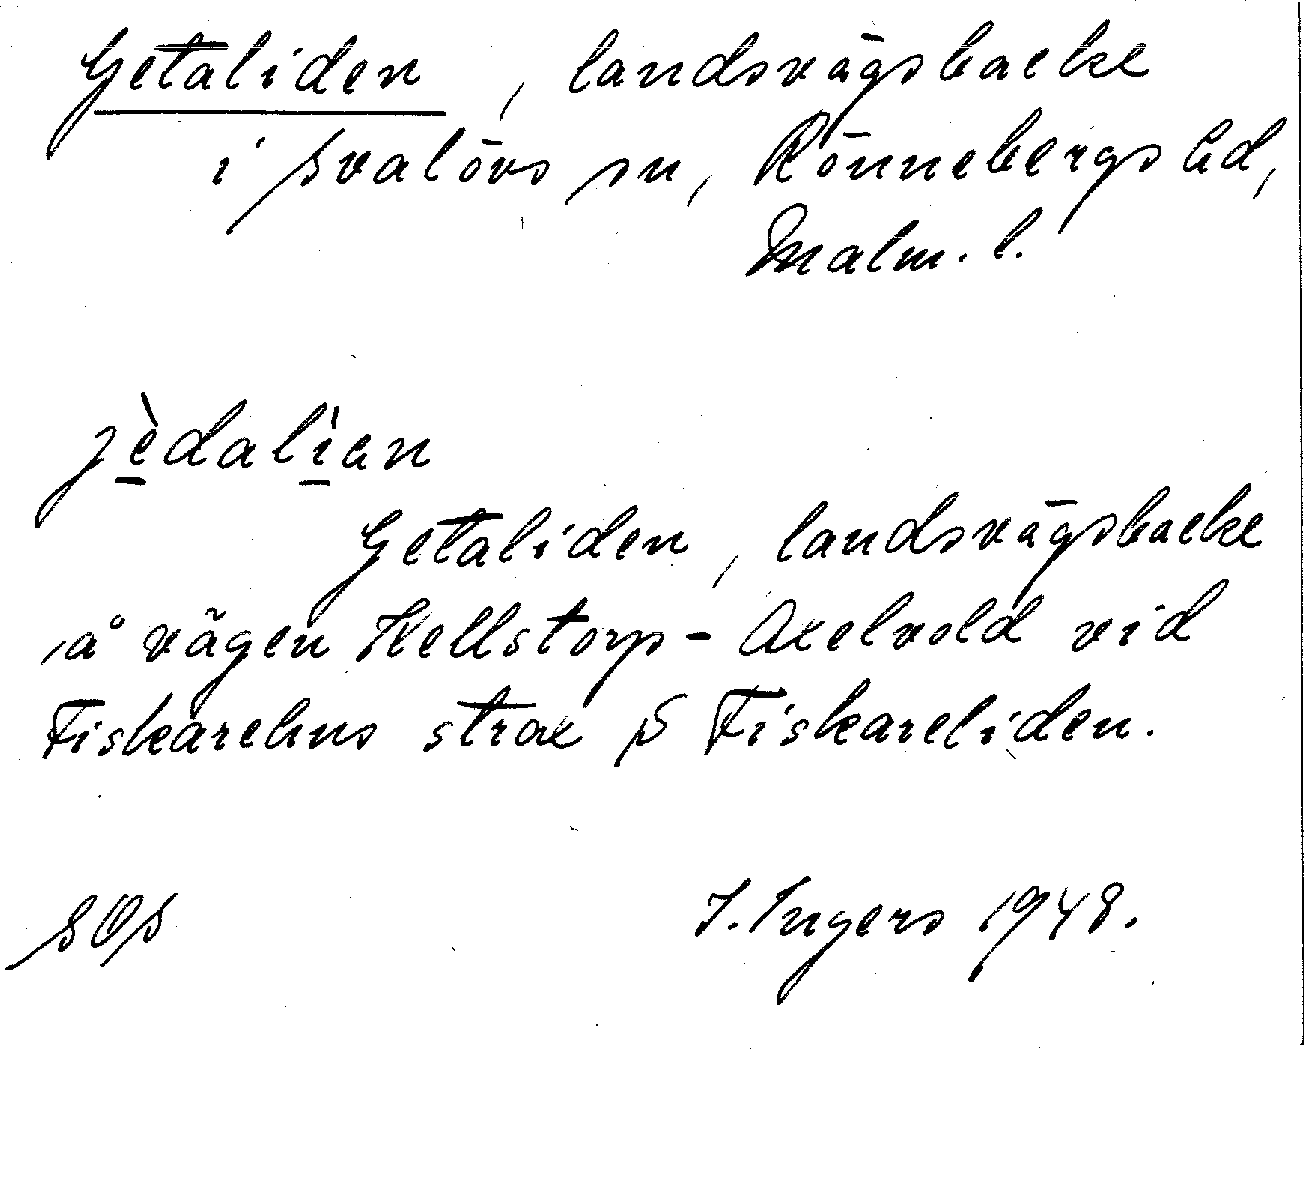 Getaliden, landsvägsbacke
i Svalövs sn, Rönnebergs hd,
Malm. l.
jèdalìan
Getaliden, landsvägsbacke
å vägen Hellstorp - Axelvold vid
Fiskarehus strax S Fiskareliden.
SOS I. Ingers 1948.